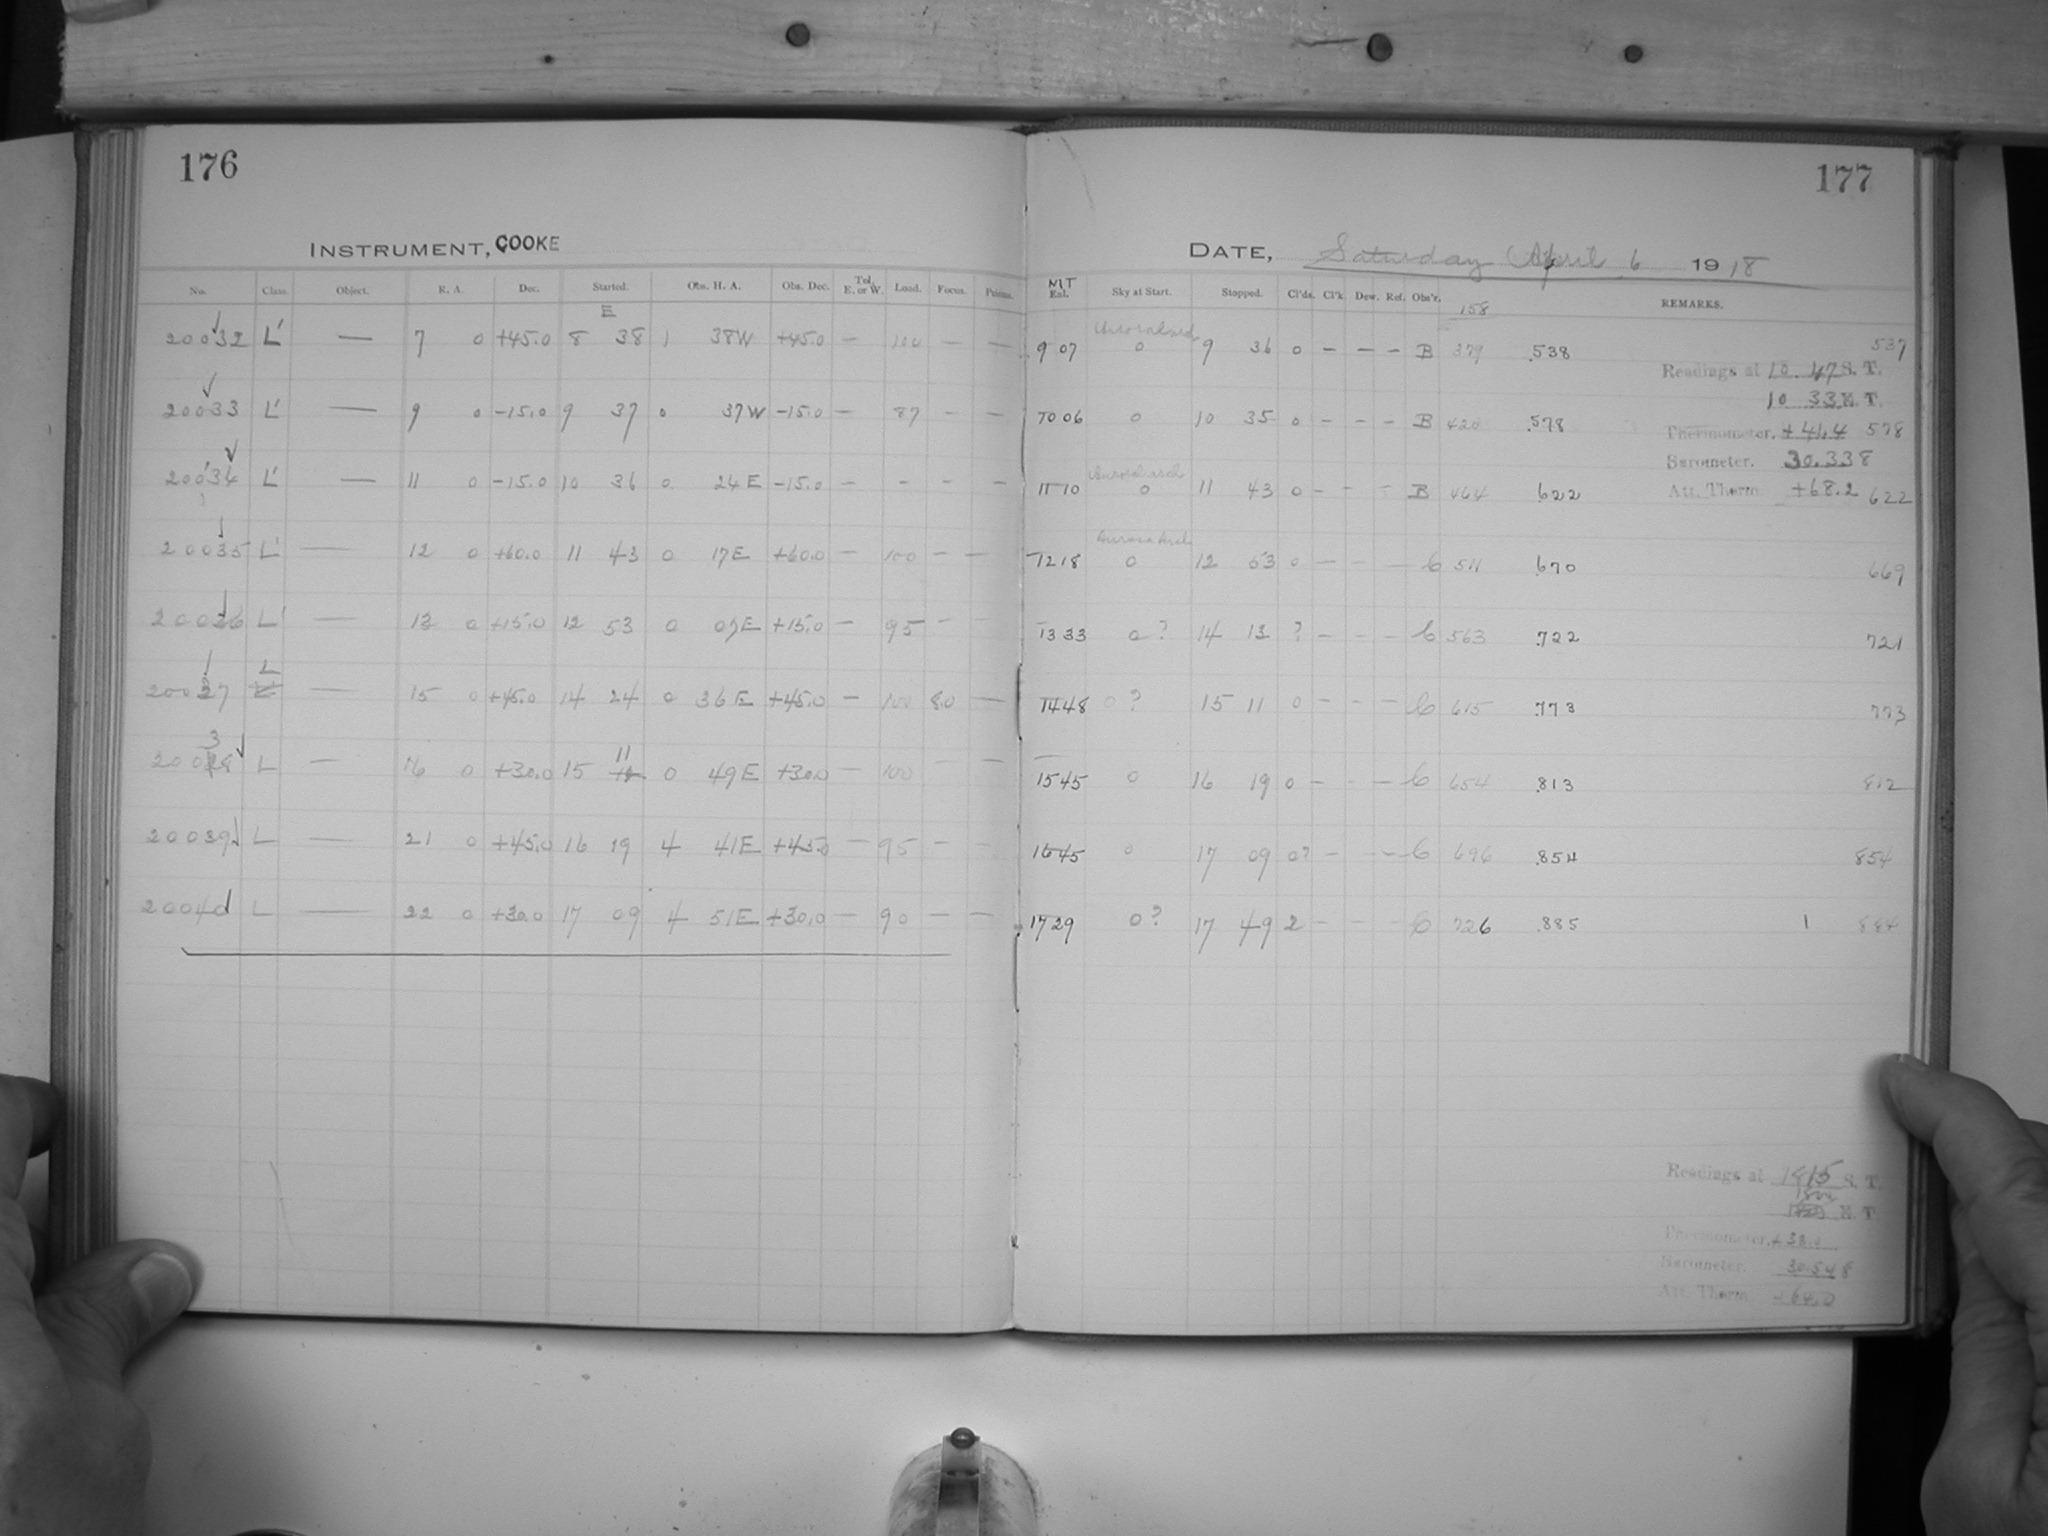 176
INSTRUMENT, COOKE
No. Class. Object. R. A. Dec. Started. Obs. H. A. Obs. Dec. Tel. E. or W. Load. Focus. Prisms.
E
20032 L' — 7 0 +45.0 8 38 1 38W +45.0 — 100 — —
20033 L' — 9 0 -15.0 9 37 0 37W -15.0 — 87 — —
20034 L' — 11 0 -15.0 10 36 0 24E -15.0 — - — —
20035 L' — 12 0 +60.0 11 43 0 17E +60.0 — 100 — —
20036 L' — 13 0 +15.0 12 53 0 07E +15.0 — 95 — —
L
20037 — 15 0 +45.0 14 24 0 36E +45.0 — 100 8.0 —
3 11
20038 L — 16 0 +30.0 15 0 49E +30.0 — 100 — —
20039 L — 21 0 +45.0 16 19 4 41E +45.0 — 95 — —
20040 L — 22 0 +30.0 17 09 4 51E +30.0 — 90 — —
177
DATE, Saturday April 6 1918
MT
Sky at Start. Stopped. Cl'ds. Cl'k. Dew. Ref. Obs'r. 158 REMARKS.
9 07 0 9 36 0 — — — B 379 .538 537
Readings at 10 47 S. T.
10 33 M. T.
10 06 0 10 35 0 - - - B 420 .578
Thermometer. +41.4 578
Barometer. 30.338
Att. Therm. +68.2 622
11 10 0 11 43 0 - - - B 464 622
Aurora Arch
12 18 0 12 53 0 — - — C 511 .670 669
13 33 0? 14 13 ? - - - C 563 .722 721
14 48 0? 15 11 0 - - — C 615 .773 773
15 45 0 16 19 0 - - — C 654 .813 812
16 45 0 17 09 0? - - — C 696 .854 854
17 29 0? 17 49 2 - - - C 726 .885 1 884
Readings at S. T.
M. T.
Thermometer.
Barometer. 30.548
Att. Therm.